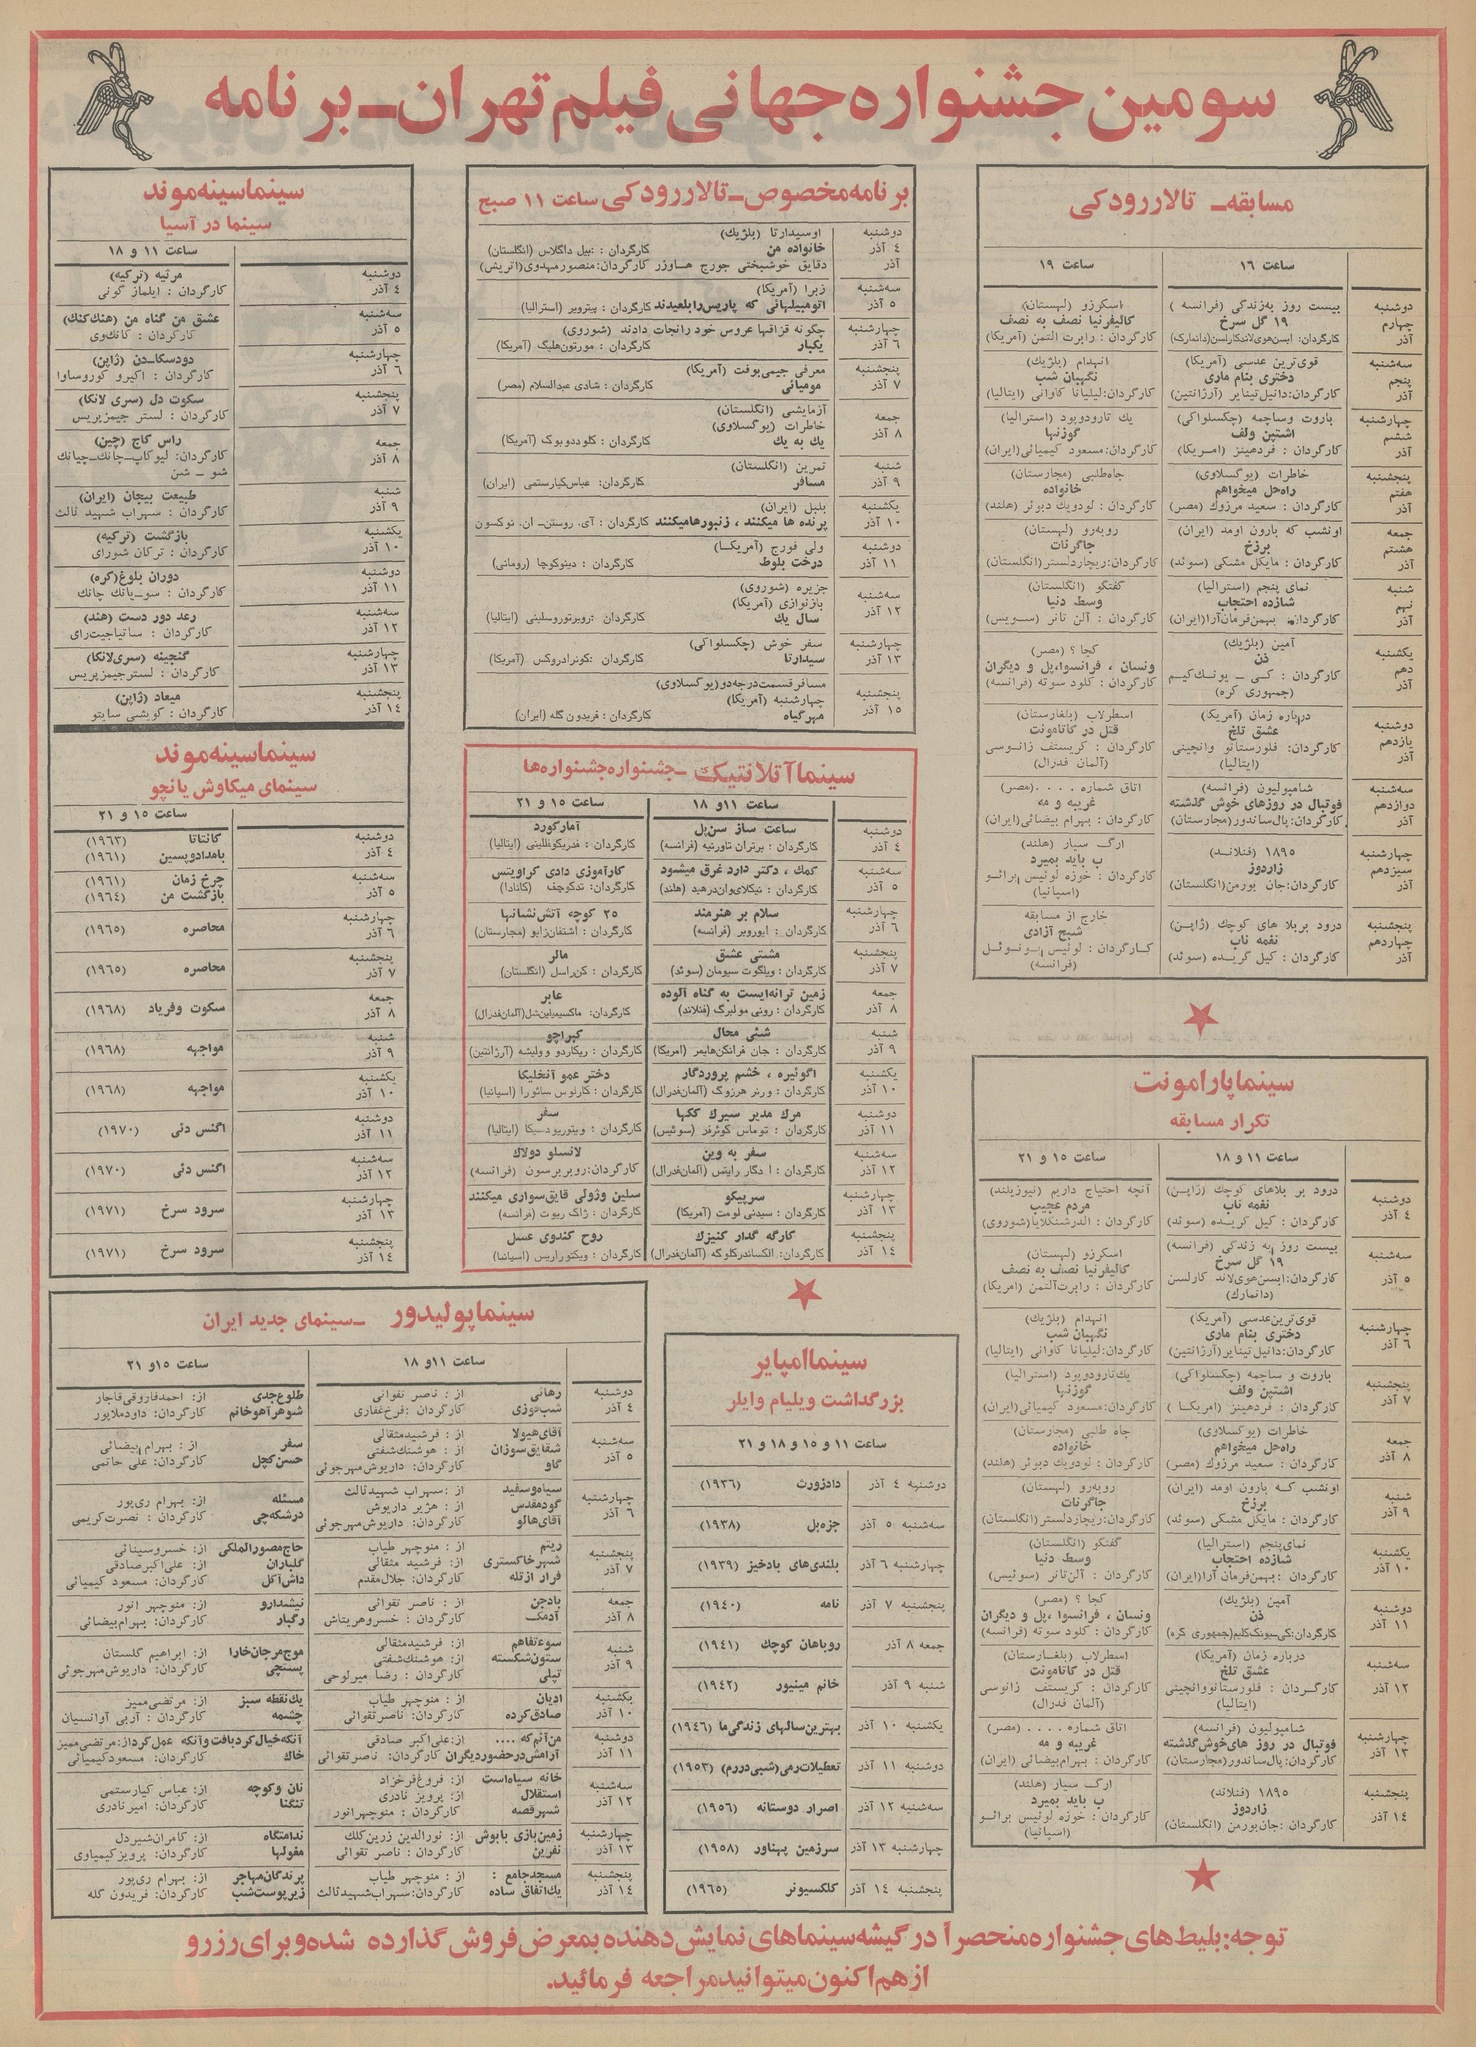 سومین جشنواره جهانی فیلم تهران ـ برنامه
مسابقه ـ تالار رودکی
ساعت ۱۶
ساعت ۱۹
دوشنبه چهارم آذر
بیست روز به زندگی (فرانسه)
۱۹ گل سرخ
کارگردان: ایسن هوی لاند کارلسن (دانمارک)
اسکرزو (لهستان)
کالیفرنیا نصف به نصف
کارگردان : رابرت التمن (آمریکا)
سه‌شنبه پنجم آذر
قوی‌ترین عدسی (آمریکا)
دختری بنام ماری
کارگردان: دانیل تینایر (آرژانتین)
انهدام (بلژیک)
نگهبان شب
کارگردان: لیلیانا کاوانی (ایتالیا)
چهارشنبه ششم آذر
باروت وساچمه (چکسلواکی)
اشتپن ولف
کارگردان : فردهینز (امریکا)
یک تارو دوپود (استرالیا)
گوزنها
کارگردان: مسعود کیمیائی (ایران)
پنجشنبه هفتم آذر
خاطرات (یوگسلاوی)
راه حل میخواهم
کارگردان : سعید مرزوک (مصر)
جاه طلبی (مجارستان)
خانواده
کارگردان : لودویک دبوئر (هلند)
جمعه هشتم آذر
اونشب که بارون اومد (ایران)
برزخ
کارگردان : مایکل مشکی (سوئد)
روبه‌رو (لهستان)
جاگرنات
کارگردان: ریچارد لستر (انگلستان)
شنبه نهم آذر
نمای پنجم (استرالیا)
شازده احتجاب
کارگردان: بهمن فرمان‌آرا (ایران)
گفتگو (انگلستان)
وسط دنیا
کارگردان : آلن تانر (سویس)
یکشنبه دهم آذر
آمین (بلژیک)
ذن
کارگردان : کی ـ یونک کیم (جمهوری کره)
کجا ؟ (مصر)
ونسان ، فرانسوا، پل و دیگران
کارگردان : کلود سوته (فرانسه)
دوشنبه یازدهم آذر
درباره زمان (آمریکا)
عشق تلخ
کارگردان: فلورستانو وانچینی (ایتالیا)
اسطرلاب (بلغارستان)
قتل در کاتامونت
کارگردان : کریستف زانوسی (آلمان فدرال)
سه‌شنبه دوازدهم آذر
شامپولیون (فرانسه)
فوتبال در روزهای خوش گذشته
کارگردان: پال ساندور (مجارستان)
اتاق شماره .... (مصر)
غریبه و مه
کارگردان : بهرام بیضائی (ایران)
چهارشنبه سیزدهم آذر
۱۸۹۵ (فنلاند)
زاردوز
کارگردان: جان بورمن (انگلستان)
ارگ سیار (هلند)
ب باید بمیرد
کارگردان : خوزه لوئیس برائو (اسپانیا)
پنجشنبه چهاردهم آذر
درود بر بلا های کوچک (ژاپن)
نغمه ناب
کارگردان : کیل گریده (سوئد)
خارج از مسابقه
شبح آزادی
کارگردان : لوئیس بونوئل (فرانسه)
سینما پارامونت
تکرار مسابقه
ساعت ۱۱ و ۱۸
ساعت ۱۵ و ۲۱
دوشنبه ۴ آذر
درود بر بلاهای کوچک (ژاپن)
نغمه ناب
کارگردان : کیل گریده (سوئد)
آنچه احتیاج داریم (نیوزیلند)
مردم عجیب
کارگردان : (شوروی)
سه‌شنبه ۵ آذر
بیست روز به زندگی (فرانسه)
۱۹ گل سرخ
کارگردان: ایسن هوی لاند کارلسن (دانمارک)
اسکرزو (لهستان)
کالیفرنیا نصف به نصف
کارگردان : رابرت آلتمن (امریکا)
چهارشنبه ۶ آذر
قوی ترین عدسی (آمریکا)
دختری بنام ماری
کارگردان: دانیل تینایر (آرژانتین)
انهدام (بلژیک)
نگهبان شب
کارگردان: لیلیانا کاوانی (ایتالیا)
پنجشنبه ۷ آذر
باروت و ساچمه (چکسلواکی)
اشتپن ولف
کارگردان : فردهینز (امریکا)
یک تارو دوپود (استرالیا)
گوزنها
کارگردان: مسعود کیمیائی (ایران)
جمعه ۸ آذر
خاطرات (یوگسلاوی)
راه حل میخواهم
کارگردان : سعید مرزوک (مصر)
جاه طلبی (مجارستان)
خانواده
کارگردان : لودویک دبوئر (هلند)
شنبه ۹ آذر
اونشب که بارون اومد (ایران)
برزخ
کارگردان : مایکل مشکی (سوئد)
روبه‌رو (لهستان)
جاگرنات
کارگردان: ریچارد لستر (انگلستان)
یکشنبه ۱۰ آذر
نمای پنجم (استرالیا)
شازده احتجاب
کارگردان : بهمن فرمان آرا (ایران)
گفتگو (انگلستان)
وسط دنیا
کارگردان : آلن تانر (سوئیس)
دوشنبه ۱۱ آذر
آمین (بلژیک)
ذن
کارگردان: کی ـ یونک کیم (جمهوری کره)
کجا ؟ (مصر)
ونسان ، فرانسوا ، پل و دیگران
کارگردان : کلود سوته (فرانسه)
سه‌شنبه ۱۲ آذر
درباره زمان (آمریکا)
عشق تلخ
کارگردان : فلورستانو وانچینی (ایتالیا)
اسطرلاب (بلغارستان)
قتل در کاتامونت
کارگردان : کریستف زانوسی (آلمان فدرال)
چهارشنبه ۱۳ آذر
شامپولیون (فرانسه)
فوتبال در روز های خوش گذشته
کارگردان: پال ساندور (مجارستان)
اتاق شماره .... (مصر)
غریبه و مه
کارگردان : بهرام بیضائی (ایران)
پنجشنبه ۱۴ آذر
۱۸۹۵ (فنلاند)
زاردوز
کارگردان : جان بورمن (انگلستان)
ارگ سیار (هلند)
ب باید بمیرد
کارگردان : خوزه لوئیس برائو (اسپانیا)
برنامه مخصوص ـ تالار رودکی ساعت ۱۱ صبح
دوشنبه ۴ آذر
اوسیدارتا (بلژیک)
خانواده من کارگردان : بیل داگلاس (انگلستان)
آذر
دقایق خوشبختی جورج هاوزر کارگردان: منصور مهدوی (اتریش)
سه‌شنبه ۵ آذر
زبرا (آمریکا)
اتومبیلهائی که پاریس را بلعیدند کارگردان : پیترویر (استرالیا)
چهارشنبه ۶ آذر
چگونه قزاقها عروس خود را نجات دادند (شوروی)
یکبار کارگردان : مورتون هلیگ (آمریکا)
پنجشنبه ۷ آذر
معرفی جیمی بوفت (آمریکا)
مومیائی کارگردان : شادی عبدالسلام (مصر)
جمعه ۸ آذر
آزمایشی (انگلستان)
خاطرات (یوگسلاوی)
یك به یك کارگردان : کلود دوبوک (آمریکا)
شنبه ۹ آذر
تمرین (انگلستان)
مسافر کارگردان: عباس کیارستمی (ایران)
یکشنبه ۱۰ آذر
بلبل (ایران)
پرنده ها میکنند ، زنبورها میکنند کارگردان : آی. روستن ـ ان. نوکسون
دوشنبه ۱۱ آذر
ولی فورج (آمریکا)
درخت بلوط کارگردان : دینوکوچا (رومانی)
سه‌شنبه ۱۲ آذر
جزیره (شوروی)
بازنوازی (آمریکا)
سال یك کارگردان : روبرتو روسلینی (ایتالیا)
چهارشنبه ۱۳ آذر
سفر خوش (چکسلواکی)
سیدارتا کارگردان : کونراد روکس (آمریکا)
پنجشنبه ۱۵ آذر
مسافر قسمت درجه دو (یوگسلاوی)
چهارشنبه (آمریکا)
مهرگیاه کارگردان : فریدون گله (ایران)
سینما آتلانتیک ـ جشنواره جشنواره‌ها
ساعت ۱۱ و ۱۸
ساعت ۱۵ و ۲۱
دوشنبه ۴ آذر
ساعت ساز سن پل
کارگردان : برتران تاورنیه (فرانسه)
آمارکورد
کارگردان : فدریکو فلینی (ایتالیا)
سه‌شنبه ۵ آذر
کمك ، دکتر دارد غرق میشود
کارگردان : نیکلای وان درهید (هلند)
کارآموزی دادی کراویتس
کارگردان: تدکوچف (کانادا)
چهارشنبه ۶ آذر
سلام بر هنرمند
کارگردان : ایوروبر (فرانسه)
۲۵ کوچه آتش نشانها
کارگردان : اشتفان زابو (مجارستان)
پنجشنبه ۷ آذر
مشتی عشق
کارگردان : ویلگوت سیومان (سوئد)
مالر
کارگردان : کن راسل (انگلستان)
جمعه ۸ آذر
زمین ترانه‌ایست به گناه آلوده
کارگردان : رونی مولبرگ (فنلاند)
عابر
کارگردان: ماکسیمیلین شل (آلمان فدرال)
شنبه ۹ آذر
شئی محال
کارگردان : جان فرانکن هایمر (امریکا)
کبراچو
کارگردان : ریکاردو وولیشه (آرژانتین)
یکشنبه ۱۰ آذر
اگوئیره ، خشم پروردگار
کارگردان : ورنر هرزوگ (آلمان فدرال)
دختر عمو آنخلیکا
کارگردان : کارلوس سائورا (اسپانیا)
دوشنبه ۱۱ آذر
مرگ مدیر سیرك ککها
کارگردان : توماس کوئرفر (سوئیس)
سفر
کارگردان : ویتوریودسیکا (ایتالیا)
سه‌شنبه ۱۲ آذر
سفر به وین
کارگردان : ادگار رایتس (آلمان فدرال)
لانسلو دولاك
کارگردان: روبر برسون (فرانسه)
چهارشنبه ۱۳ آذر
سرپیکو
کارگردان : سیدنی لومت (آمریکا)
سلین و ژولی قایق سواری میکنند
کارگردان : ژاک ریوت (فرانسه)
پنجشنبه ۱۴ آذر
کارگه گدار کنیزك
کارگردان: الکساندر کلوگه (آلمان فدرال)
روح کندوی عسل
کارگردان : ویکتور اریس (اسپانیا)
سینما سینه موند
سینما در آسیا
ساعت ۱۱ و ۱۸
دوشنبه ۴ آذر
مرثیه (ترکیه)
کارگردان : ایلماز گونی
سه‌شنبه ۵ آذر
عشق من گناه من (هنك کنك)
کارگردان : کانك وی
چهارشنبه ۶ آذر
دودسکا ـ دن (ژاپن)
کارگردان : اکیرو کوروساوا
پنجشنبه ۷ آذر
سکوت دل (سری لانکا)
کارگردان : لستر جیمز پریس
جمعه ۸ آذر
راس کاج (چین)
کارگردان: لیوکاپ ـ چانك ـ چیانك شو ـ شن
شنبه ۹ آذر
طبیعت بیجان (ایران)
کارگردان : سهراب شهید ثالث
یکشنبه ۱۰ آذر
بازگشت (ترکیه)
کارگردان : ترکان شورای
دوشنبه ۱۱ آذر
دوران بلوغ (کره)
کارگردان : سو ـ یانك چانك
سه‌شنبه ۱۲ آذر
رعد دور دست (هند)
کارگردان : ساتیاجیت رای
چهارشنبه ۱۳ آذر
گنجینه (سری لانکا)
کارگردان : لستر جیمز پریس
پنجشنبه ۱۴ آذر
میعاد (ژاپن)
کارگردان : کویشی سایتو
سینما سینه موند
سینمای میکلوش یانچو
ساعت ۱۵ و ۲۱
دوشنبه ۴ آذر
کانتاتا (۱۹۶۳)
بامداد و پسین (۱۹۶۱)
سه‌شنبه ۵ آذر
چرخ زمان (۱۹۶۱)
بازگشت من (۱۹۶۴)
چهارشنبه ۶ آذر
محاصره (۱۹۶۵)
پنجشنبه ۷ آذر
محاصره (۱۹۶۵)
جمعه ۸ آذر
سکوت وفریاد (۱۹۶۸)
شنبه ۹ آذر
مواجهه (۱۹۶۸)
یکشنبه ۱۰ آذر
مواجهه (۱۹۶۸)
دوشنبه ۱۱ آذر
اگنس دئی (۱۹۷۰)
سه‌شنبه ۱۲ آذر
اگنس دئی (۱۹۷۰)
چهارشنبه ۱۳ آذر
سرود سرخ (۱۹۷۱)
پنجشنبه ۱۴ آذر
سرود سرخ (۱۹۷۱)
سینما امپایر
بزرگداشت ویلیام وایلر
ساعت ۱۱ و ۱۵ و ۱۸ و ۲۱
دوشنبه ۴ آذر دادزورث (۱۹۳۶)
سه‌شنبه ۵ آذر جزه‌بل (۱۹۳۸)
چهارشنبه ۶ آذر بلندی های بادخیز (۱۹۳۹)
پنجشنبه ۷ آذر نامه (۱۹۴۰)
جمعه ۸ آذر روباهان کوچك (۱۹۴۱)
شنبه ۹ آذر خانم مینیور (۱۹۴۲)
یکشنبه ۱۰ آذر بهترین سالهای زندگی ما (۱۹۴۶)
دوشنبه ۱۱ آذر تعطیلات رمی (شبی در رم) (۱۹۵۳)
سه‌شنبه ۱۲ آذر اصرار دوستانه (۱۹۵۶)
چهارشنبه ۱۳ آذر سرزمین پهناور (۱۹۵۸)
پنجشنبه ۱۴ آذر کلکسیونر (۱۹۶۵)
سینما پولیدور ـ سینمای جدید ایران
ساعت ۱۱ و ۱۸
ساعت ۱۵ و ۲۱
دوشنبه ۴ آذر
رهائی از : ناصر تقوائی
شب قوزی کارگردان : فرخ غفاری
طلوع جدی از: احمد فاروقی قاجار
شوهر آهو خانم کارگردان: داود ملاپور
سه‌شنبه ۵ آذر
آقای هیولا از : فرشید مثقالی
شقایق سوزان از : هوشنك شفتی
گاو کارگردان: داریوش مهرجوئی
سفر از : بهرام بیضائی
حسن کچل کارگردان: علی حاتمی
چهارشنبه ۶ آذر
سیاه و سفید از : سهراب شهید ثالث
گود مقدس از : هژیر داریوش
آقای هالو کارگردان: داریوش مهرجوئی
مسئله از: بهرام ری پور
درشکه چی کارگردان : نصرت کریمی
پنجشنبه ۷ آذر
ریتم از: منوچهر طیاب
شهر خاکستری از: فرشید مثقالی
فرار از تله کارگردان: جلال مقدم
حاج مصور الملکی از: خسرو سینائی
گلباران از: علی اکبر صادقی
داش آکل کارگردان: مسعود کیمیائی
جمعه ۸ آذر
بادجن از : ناصر تقوائی
آدمك کارگردان : خسرو هریتاش
نیشدارو از: منوچهر انور
رگبار کارگردان: بهرام بیضائی
شنبه ۹ آذر
سوء تفاهم از: فرشید مثقالی
ستون شکسته از: هوشنك شفتی
تپلی کارگردان : رضا میرلوحی
موج مرجان خارا از: ابراهیم گلستان
پستچی کارگردان: داریوش مهرجوئی
یکشنبه ۱۰ آذر
ادیان از : منوچهر طیاب
صادق کرده کارگردان: ناصر تقوائی
یك نقطه سبز از: مرتضی ممیز
چشمه کارگردان : آربی آوانسیان
دوشنبه ۱۱ آذر
من آنم که .... از: علی اکبر صادقی
آرامش در حضور دیگران کارگردان: ناصر تقوائی
آنکه خیال کرد بافت و آنکه عمل کرد از: مرتضی ممیز
خاك کارگردان: مسعود کیمیائی
سه‌شنبه ۱۲ آذر
خانه سیاه است از: فروغ فرخزاد
استقلال از: پرویز نادری
شهر قصه کارگردان : منوچهر انور
نان و کوچه از: عباس کیارستمی
تنگنا کارگردان: امیر نادری
چهارشنبه ۱۳ آذر
زمین بازی بابوش از: نورالدین زرین کلك
نفرین کارگردان : ناصر تقوائی
ندامتگاه از: کامران شیردل
مغولها کارگردان: پرویز کیمیاوی
پنجشنبه ۱۴ آذر
مسجد جامع : از : منوچهر طیاب
یك اتفاق ساده کارگردان: سهراب شهید ثالث
پرندگان مهاجر از: بهرام ری پور
زیر پوست شب کارگردان: فریدون گله
توجه: بلیط های جشنواره منحصراً در گیشه سینماهای نمایش دهنده بمعرض فروش گذارده شده و برای رزرو
از هم اکنون میتوانید مراجعه فرمائید.